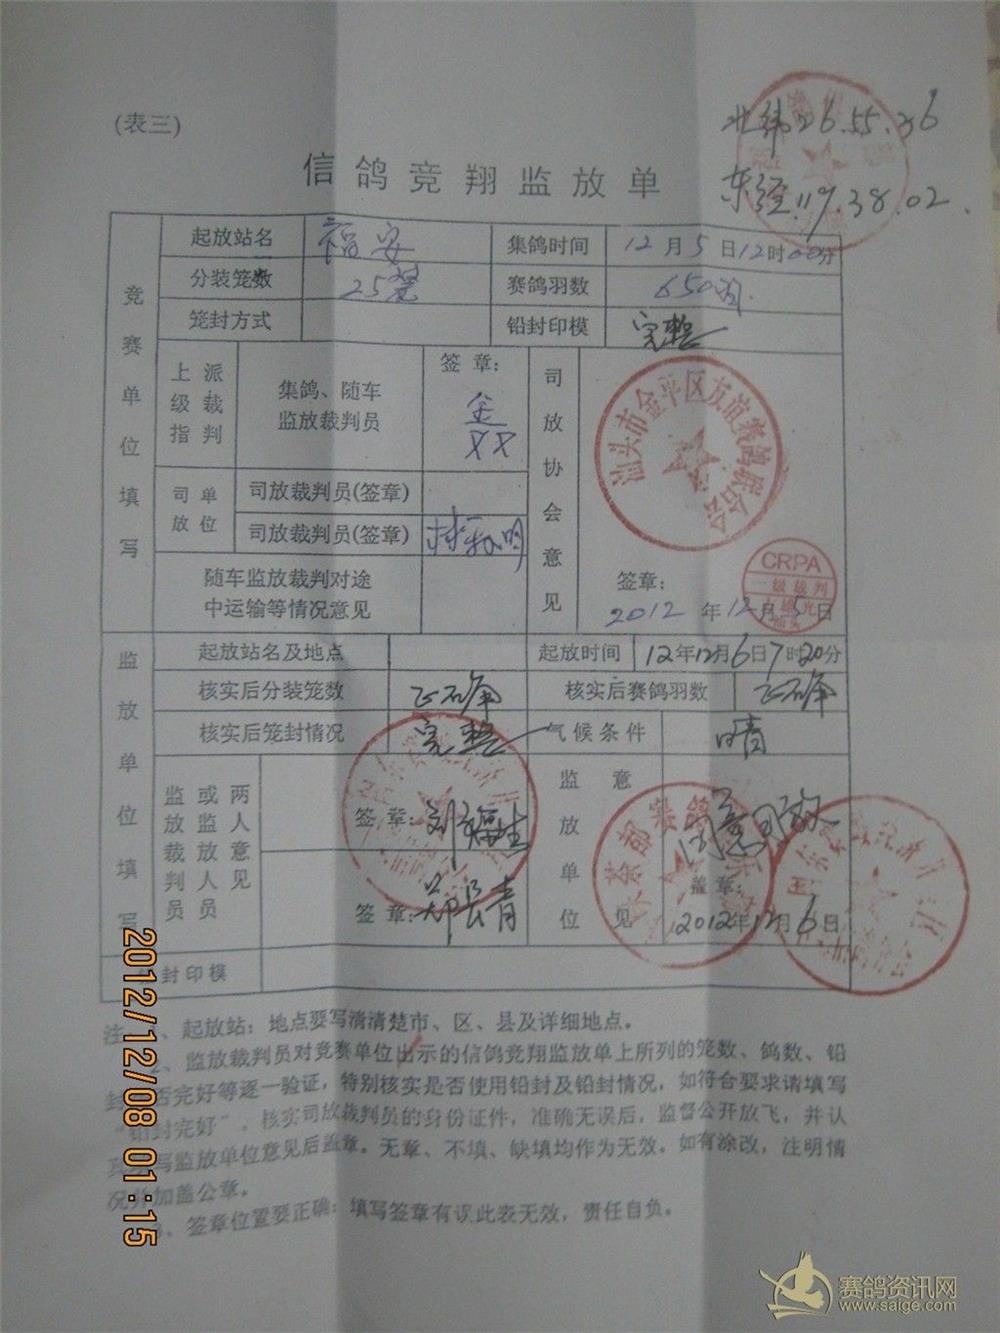 (表三)
北纬26.55.36
东经119.38.02.
信鸽竞翔监放单
竞赛单位填写
起放站名 福安 集鸽时间 12月5日12时00分
分装笼数 25笼 赛鸽羽数 650羽
笼封方式 铅封印模 完整
上级指派裁判 集鸽、随车监放裁判员 签章:
司放单位 司放裁判员(签章)
司放裁判员(签章)
随车监放裁判对途中运输等情况意见
司放协会意见
汕头市金平区友谊赛鸽联合会
签章:
2012年12月5日
CRPA
一级裁判
汕头
监放单位填写
起放站名及地点 起放时间 12年12月6日7时20分
核实后分装笼数 正确 核实后赛鸽羽数 正确
核实后笼封情况 完整 气候条件 晴
监放裁判员或监放人员两人意见 签章:刘福生
签章:郑长青
监放单位意见 同意司放
盖章:
2012年12月6日
封印模
注 、起放站:地点要写清清楚市、区、县及详细地点。
、监放裁判员对竞赛单位出示的信鸽竞翔监放单上所列的笼数、鸽数、铅
封 否完好等逐一验证,特别核实是否使用铅封及铅封情况,如符合要求请填写
“铅封完好”。核实司放裁判员的身份证件,准确无误后,监督公开放飞,并认
真 写监放单位意见后盖章。无章、不填、缺填均作为无效。如有涂改,注明情
况并加盖公章。
、签章位置要正确:填写签章有误此表无效,责任自负。
2012/12/08 01:15
赛鸽资讯网
www.saige.com